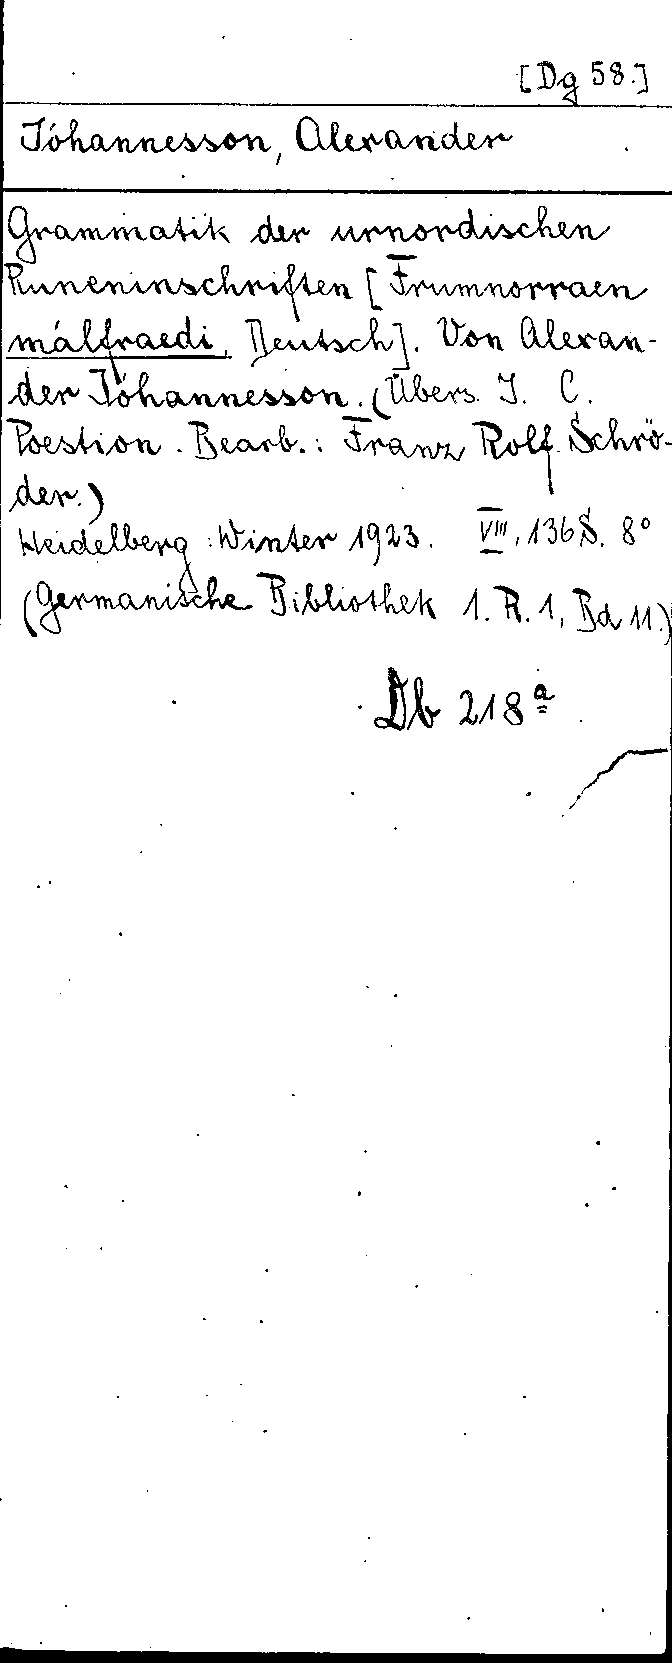 [Dg 58.]
Jóhannesson, Alexander
Grammatik der urnordischen
Runeninschriften [Frumnorraen
málfraedi, Deutsch]. Von Alexan-
der Jóhannesson. (Übers. J. C.
Poestion. Bearb.: Franz Rolf Schrö-
der.)
Heidelberg: Winter 1923. VIII, 136 S. 8°
(Germanische Bibliothek 1. R. 1, Bd 11.)
Db 218ª